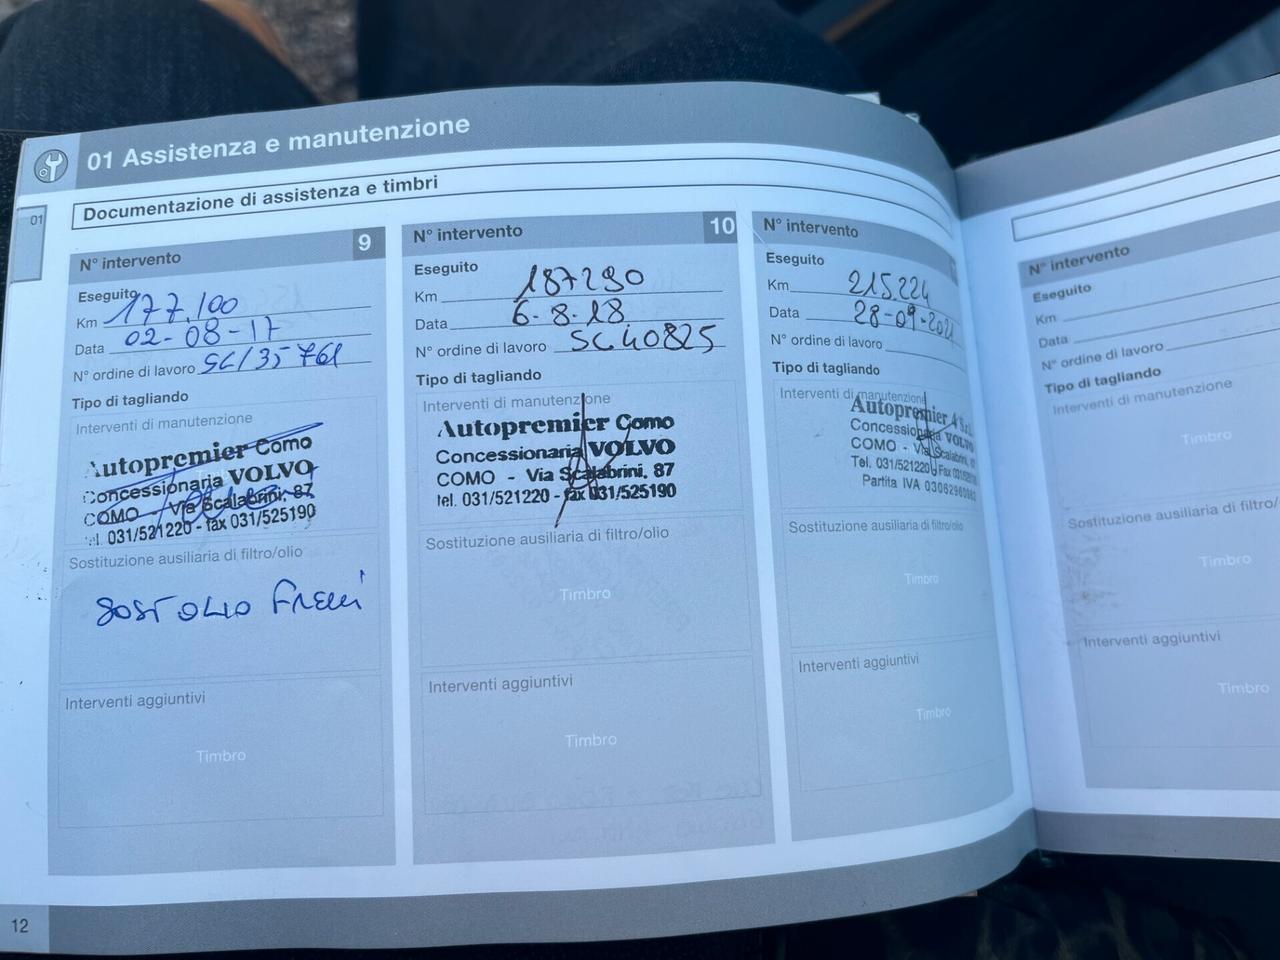 01 Assistenza e manutenzione
01
Documentazione di assistenza e timbri
N° intervento 9
Eseguito
Km 177.100
Data 02-08-17
N° ordine di lavoro SC/35761
Tipo di tagliando
Interventi di manutenzione
Autopremier Como
Concessionaria VOLVO
COMO - Via Scalabrini, 87
tel. 031/521220 - fax 031/525190
Sostituzione ausiliaria di filtro/olio
SOST OLIO FRENI
Interventi aggiuntivi
Timbro
N° intervento 10
Eseguito
Km 187290
Data 6-8-18
N° ordine di lavoro SC40825
Tipo di tagliando
Interventi di manutenzione
Autopremier Como
Concessionaria VOLVO
COMO - Via Scalabrini, 87
tel. 031/521220 - fax 031/525190
Sostituzione ausiliaria di filtro/olio
Timbro
Interventi aggiuntivi
Timbro
N° intervento
Eseguito
Km 215.224
Data 28-09-2021
N° ordine di lavoro
Tipo di tagliando
Interventi di manutenzione
Autopremier
Concessionaria VOLVO
COMO - Via Scalabrini,
Tel. 031/521220 Fax
Partita IVA
Sostituzione ausiliaria di filtro/olio
Timbro
Interventi aggiuntivi
Timbro
N° intervento
Eseguito
Km
Data
N° ordine di lavoro
Tipo di tagliando
Interventi di manutenzione
Timbro
Sostituzione ausiliaria di filtro/
Timbro
Interventi aggiuntivi
Timbro
12